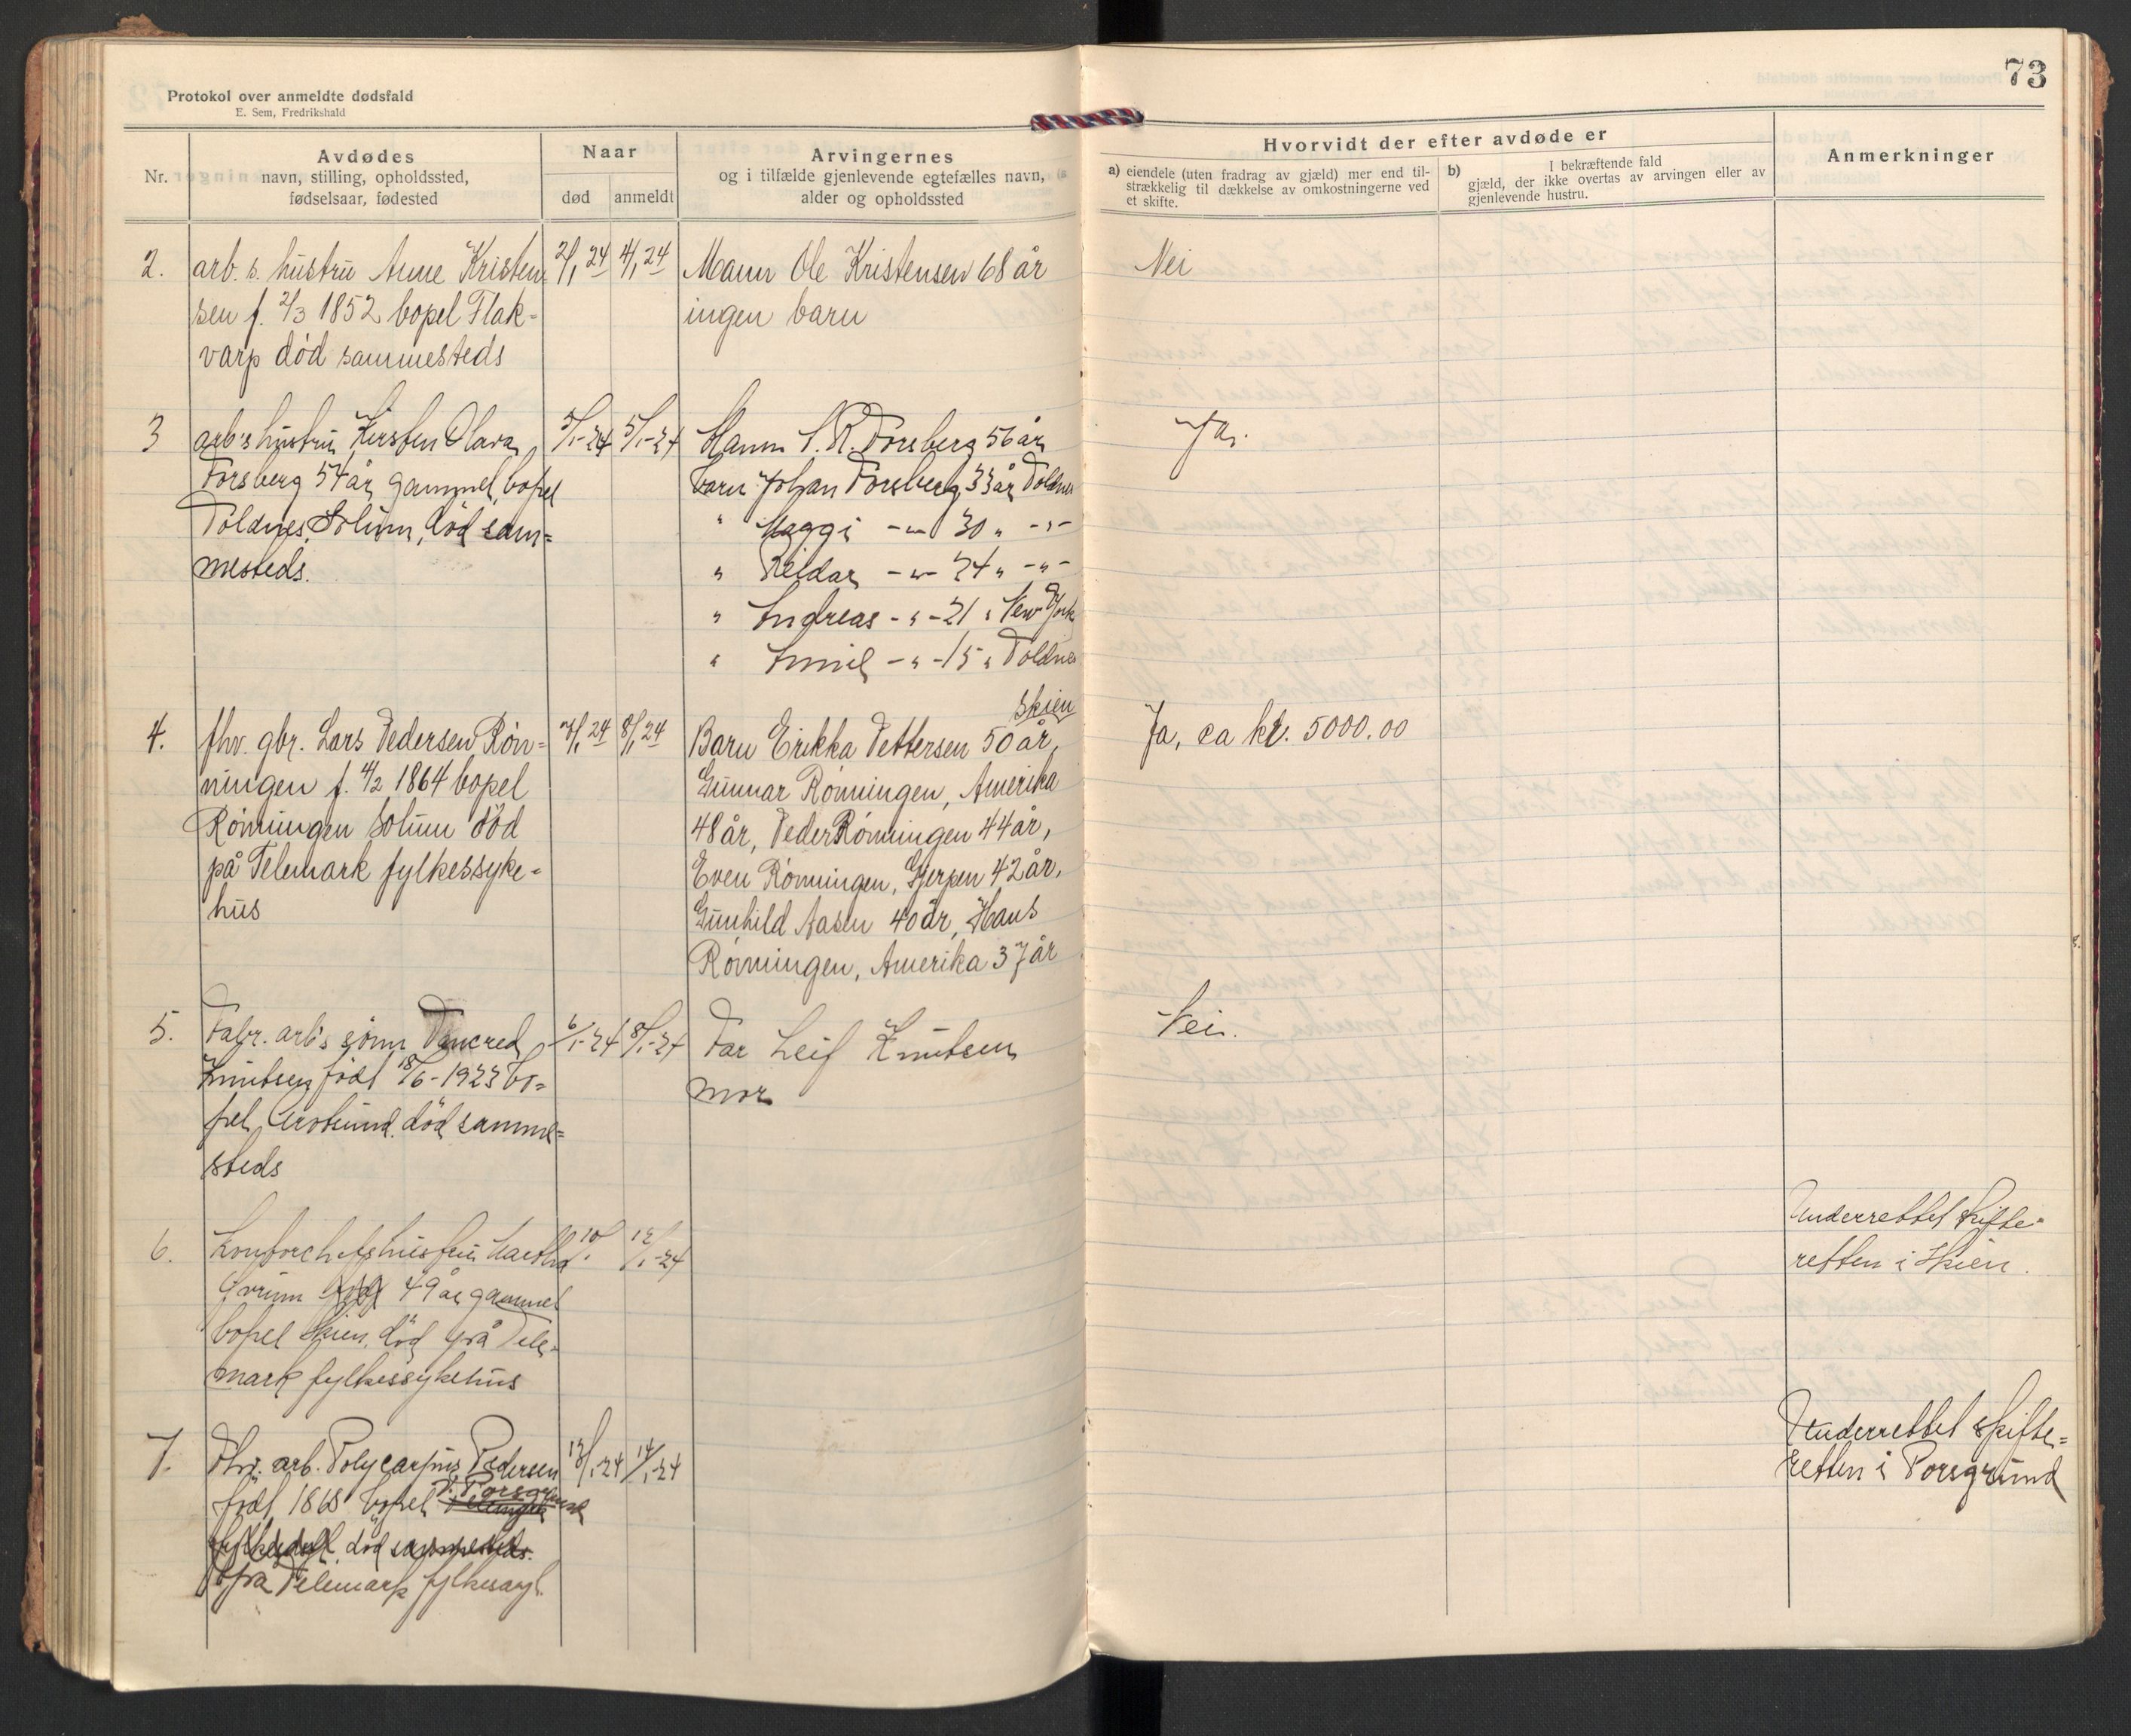 73
Protokol over anmeldte dødsfald
E. Sem, Fredrikshald
Nr.
Avdødes
navn, stilling, opholdssted,
fødselsaar, fødested
Naar
død
anmeldt
Arvingernes
og i tilfælde gjenlevende egtefælles navn,
alder og opholdssted
Hvorvidt der efter avdøde er
a) eiendele (uten fradrag av gjæld) mer end til-
strækkelig til dækkelse av omkostningerne ved
et skifte.
b) I bekræftende fald
gjæld, der ikke overtas av arvingen eller av
gjenlevende hustru.
Anmerkninger
2. arb. s. hustru Anne Kristen- 2/1 24 4/1 24 Mann Ole Kristensen 68 år Nei
sen f. 2/3 1852 bopel Flak- ingen barn
varp död sammesteds
3 arb's hustru Kirsten Olava 3/1-24 5/1-24 Mann S. R. Forsberg 56 år Ja.
Forsberg 54 år gammel, bopel barn Johan Forsberg 33 år Toldnes
Toldnes, Solum, död sam= " Maggi -"- 30 " -"-
mesteds. " Reidar -"- 24 " -"-
" Andreas -"- 21 " New York
" Emil -"- 15 " Toldnes
Skien
4. fhv. gbr. Lars Pedersen Røn- 7/1 24 8/1 24 Barn Erikka Pettersen 50 år, Ja, ca kr. 5000.00
ningen f. 4/2 1864 bopel Gunnar Rønningen, Amerika
Rønningen Solum död 48 år, Peder Rønningen 44 år,
på Telemark fylkessyke- Even Rønningen, Gjerpen 42 år,
hus Gunhild Aasen 40 år, Hans
Rønningen, Amerika 37 år
5. Fabr. arb's sønn Tancred 6/1-24 8/1-24 Far Leif Knutsen Nei.
Knutsen født 18/6-1923 bo= mor
pel Arosund. död samme=
steds
6. Kontorchefs hustru Martha 10/1 12/1-24 Underrettet skifte-
49 år gammel retten i Skien.
bopel Skien, död på Tele-
mark fylkessykehus
7. Fhv. arb. Polycarpus Pedersen 13/1-24 14/1-24 Underrettet skifte=
født 1868 bopel V. Porsgrund retten i Porsgrund
död sammesteds.
på Telemark fylkesasyl.